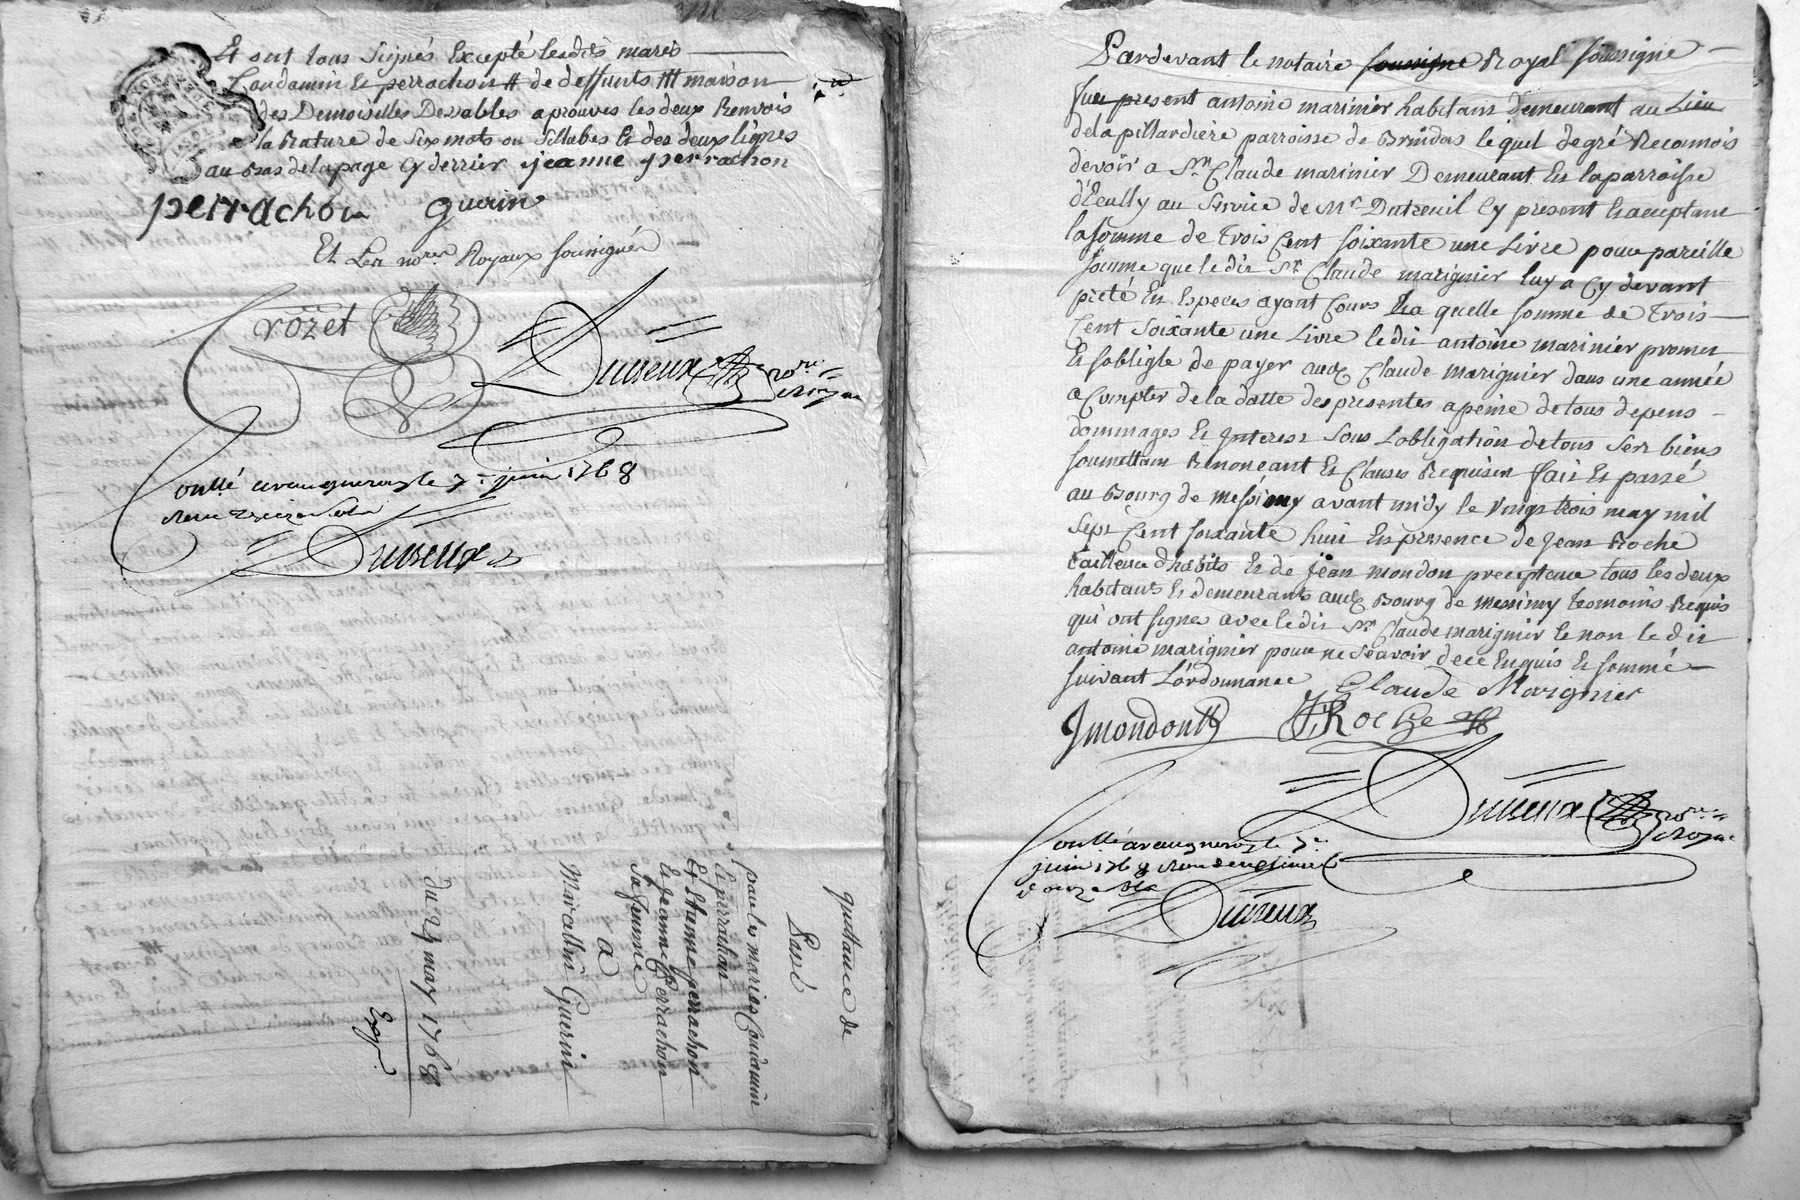 Et ont tous signés Excepté lesdits mariés
Coudamin Et perrachon # de deffunts ### maison
des Demoiselles Desvables aprouvés les deux Renvois
la Rature de Six mots ou Sillabes Et des deux lignes
au bas de la page Cy derrier jeanne perrachon
perrachon guerin
Et Les nores Royaux soussignés
Crozet Duvieux nore Royal
Conllé a vaugneray le 7e juin 1768
Reçu
Duvieux
quittance de
passé
par les mariés Coudamin
Et perrachon
Et Etienne perrachon
Et Jeanne perrachon
sa femme
a
Marcellin Guerin
du 23 may 1768
Expé
Pardevant le notaire soussigne Royal soussigne
fut present antoine marinier habitant demeurant au Lieu
de la pillardiere parroisse de Brindas lequel de gré Reconnois
devoir a Sr Claude marinier Demeurant En la parroisse
d'Ecully au Service de Mr Dutreuil Cy present Et acceptant
la somme de Trois Cent soixante une Livre pour pareille
somme que le dit Sr Claude marignier luy a Cy devant
preté En Especes ayant Cours La quelle somme de Trois
Cent Soixante une Livre le dit antoine marinier promet
Et s'oblige de payer aud Claude marignier dans une année
a Compter de la datte des presentes a peine de tous depens
dommages Et Interest sous L'obligation de tous Ses biens
soumettant Renonceant Et Clauses Requises fait Et passé
au Bourg de messimy avant midy le vingt trois may mil
Sept Cent soixante huit En presence de Jean Roche
tailleur d'habits Et de Jean mondon precepteur tous les deux
habitants Et demeurants aud Bourg de messimy temoins Requis
qui ont signes avec le dit Sr Claude marignier Et non le dit
antoine marignier pour ne Sçavoir de ce Enquis Et sommé
suivant L'ordonnance Claude Marignier
Jmondon JRoche
Duvieux nore Royal
Conllé a vaugneray le 7e
juin 1768
Duvieux